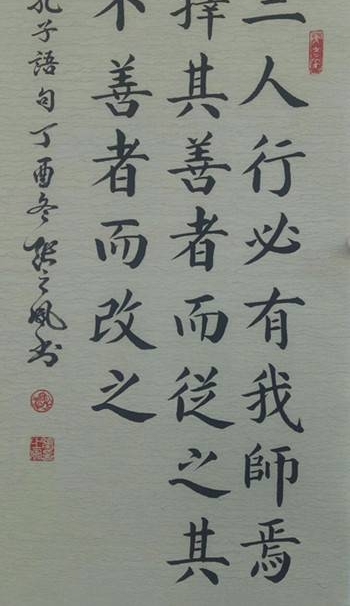 三人行必有我師焉
擇其善者而從之其
不善者而改之
孔子語句丁酉冬張之風书